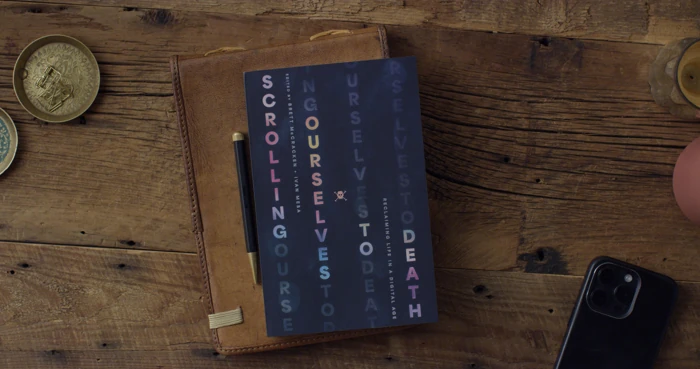 SCROLLINGOURSE
EDITED BY BRETT McCRACKEN + IVAN MESA
NGOURSELVESTOD
URSELVESTODEAT
RECLAIMING LIFE IN A DIGITAL AGE
RSELVESTODEATH